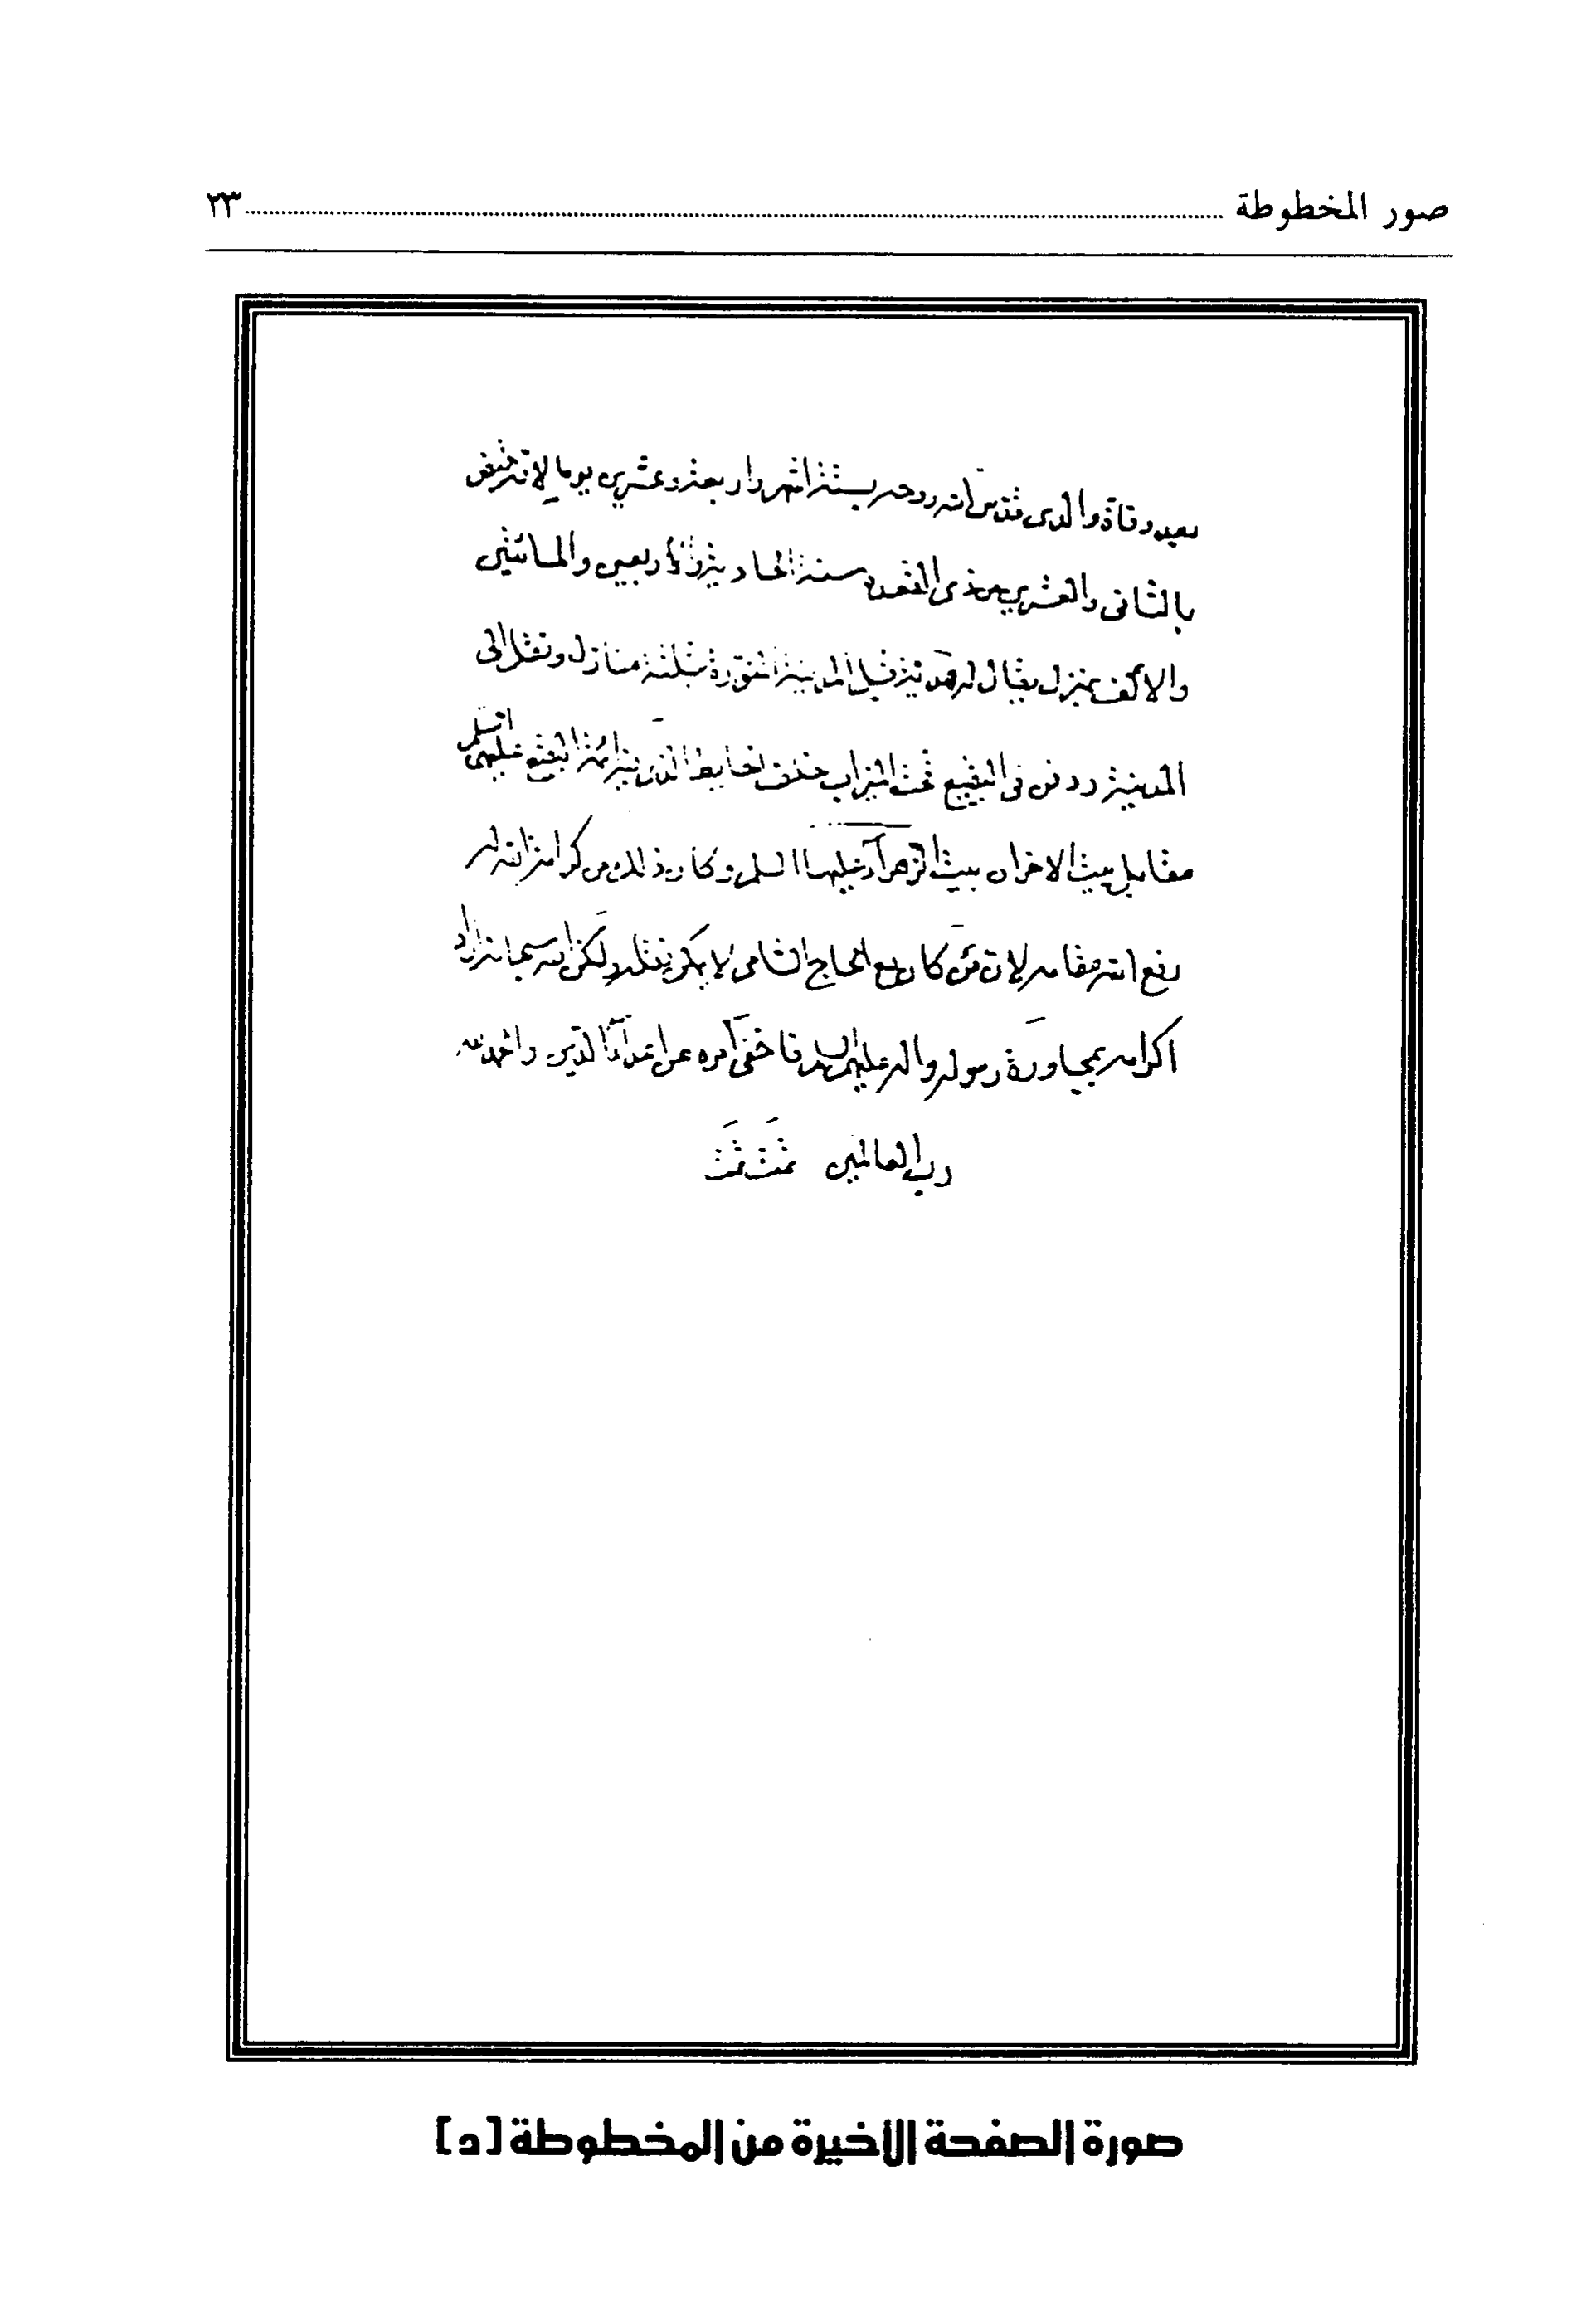 صور المخطوطة ........ ٢٣
بعد وفاة والدى قدس الله روحه بستة اشهر واربعة وعشرين يوما لانه توفى
بالثانى والعشرين من ذى القعدة سنة الحادية والاربعين والمائتين
والالف بمنزل يقال له هدية قبل المدينة المنورة بثلثة منازل ونقل الى
المدينة ودفن فى البقيع تحت الميزاب خلف الحايط الذى فيه ائمة البقيع عليهم السلم
مقابل بيت الاحزان بيت الزهرآء عليها السلم وكان ذلك من كرامة الله له
رفع الله مقامه لان من كان مع الحاج الشامى لا يمكن نقله ولكن الله سبحانه اراد
اكرامه بمجاورة رسوله واله عليهم السلم فاخفى امره عن اعدآء الدين والحمد لله
رب العالمين تمت تمت
صورة الصفحة الأخيرة من المخطوطة [د]